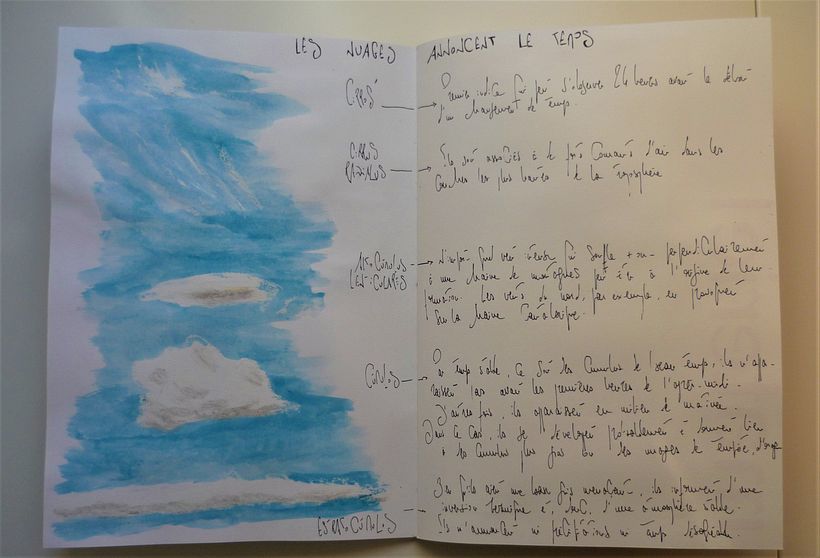 LES NUAGES ANNONCENT LE TEMPS
CIRRUS
Premier indice qui peut s'observer 24 heures avant le début
d'un changement de temps.
CIRRUS
RADIATUS
Ils sont associés à de forts courants d'air dans les
couches les plus hautes de la troposphère
ALTOCÚMULUS
LENTICULARIS
N'importe quel vent intense qui souffle + ou - perpendiculairement
à une chaîne de montagnes peut être à l'origine de leur
formation. Les vents du nord, par exemple, en provoquent
sur la chaîne Cantabrique.
CÚMULUS
Par temps stable, ce sont les cumulus de beau temps, ils n'appa-
raissent pas avant les premières heures de l'après-midi.
D'autres fois, ils apparaissent en milieu de matinée.
Dans ce cas, ils se développent et donnent lieu
à des cumulus plus gros ou des nuages de tempête, d'orage
ESTRATOCÚMULUS
Bien qu'ils aient une base grise menaçante, ils informent d'une
inversion thermique et, donc, d'une atmosphère stable.
Ils n'annoncent ni précipitations ni temps désagréable.